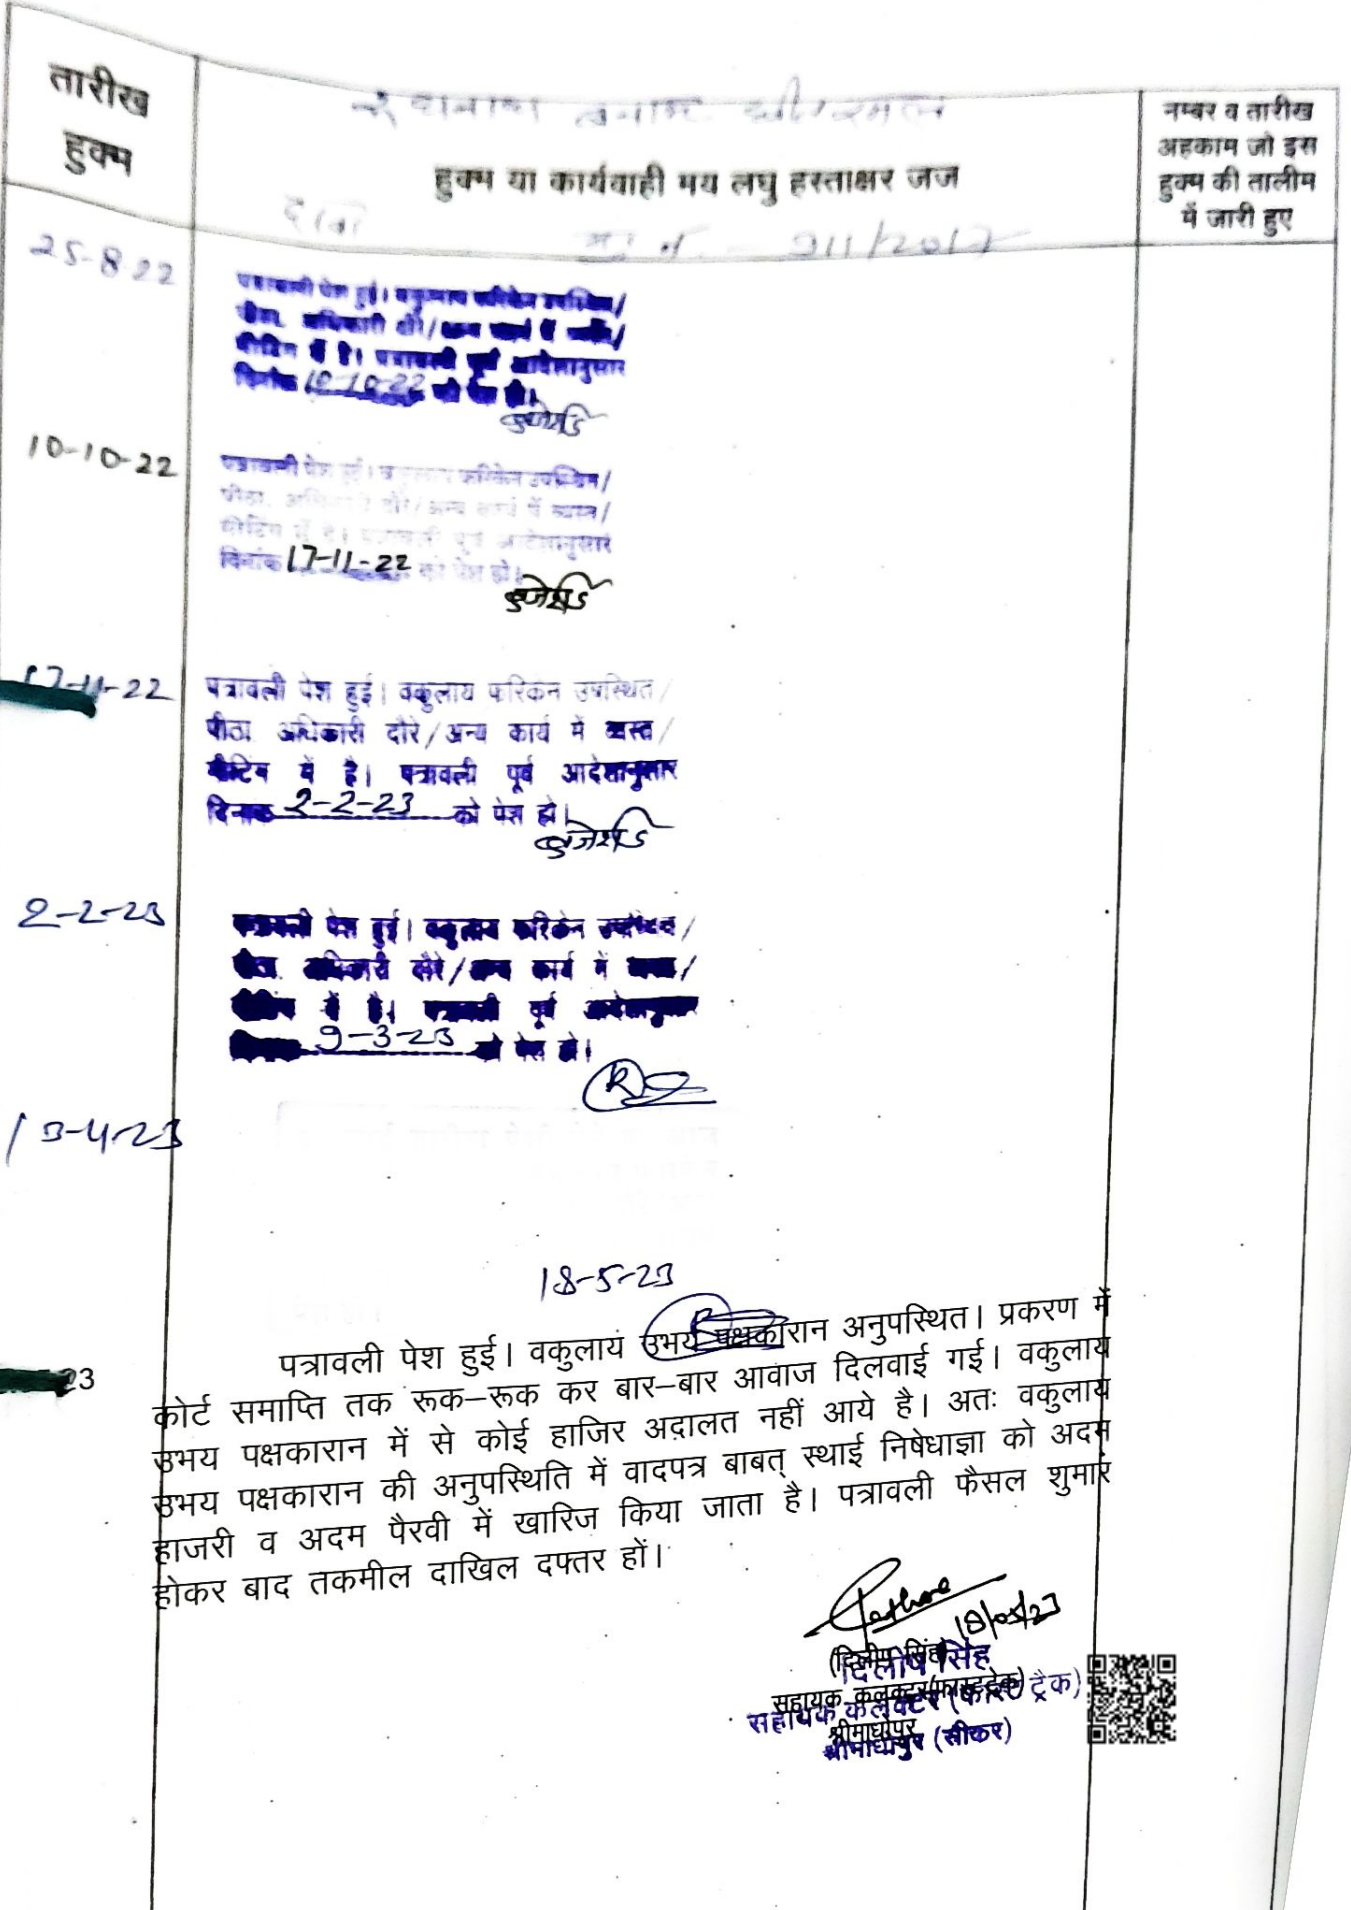 तारीख
हुक्म
बनाम
हुक्म या कार्यवाही मय लघु हस्ताक्षर जज
नम्बर व तारीख
अहकाम जो इस
हुक्म की तालीम
में जारी हुए
दावा
मु. नं. - 911/2017
25-8-22
पत्रावली पेश हुई। वकुलाय फरिकेन उपस्थित/
पीठा. अधिकारी दौरे/अन्य कार्य में व्यस्त/
मीटिंग में है। पत्रावली पूर्व आदेशानुसार
दिनांक 10-10-22 को पेश हो।
10-10-22
पत्रावली पेश हुई। वकुलाय फरिकेन उपस्थित/
पीठा. अधिकारी दौरे/अन्य कार्य में व्यस्त/
मीटिंग में है। पत्रावली पूर्व आदेशानुसार
दिनांक 17-11-22 को पेश हो।
17-11-22
पत्रावली पेश हुई। वकुलाय फरिकेन उपस्थित/
पीठा. अधिकारी दौरे/अन्य कार्य में व्यस्त/
मीटिंग में है। पत्रावली पूर्व आदेशानुसार
दिनांक 2-2-23 को पेश हो।
2-2-23
पत्रावली पेश हुई। वकुलाय फरिकेन उपस्थित/
पीठा. अधिकारी दौरे/अन्य कार्य में व्यस्त/
मीटिंग में है। पत्रावली पूर्व आदेशानुसार
दिनांक 9-3-23 को पेश हो।
13-4-23
18-5-23
पत्रावली पेश हुई। वकुलाय उभय पक्षकारान अनुपस्थित। प्रकरण में
23
कोर्ट समाप्ति तक रूक–रूक कर बार–बार आवाज दिलवाई गई। वकुलाय
उभय पक्षकारान में से कोई हाजिर अदालत नहीं आये है। अतः वकुलाय
उभय पक्षकारान की अनुपस्थिति में वादपत्र बाबत् स्थाई निषेधाज्ञा को अदम
हाजरी व अदम पैरवी में खारिज किया जाता है। पत्रावली फैसल शुमार
होकर बाद तकमील दाखिल दफ्तर हों।
18/05/23
(दिलीप सिंह)
दिलीप सिंह
सहायक कलक्टर(फास्टट्रेक)
सहायक कलेक्टर (फास्ट ट्रैक)
श्रीमाधोपुर
श्रीमाधोपुर (सीकर)